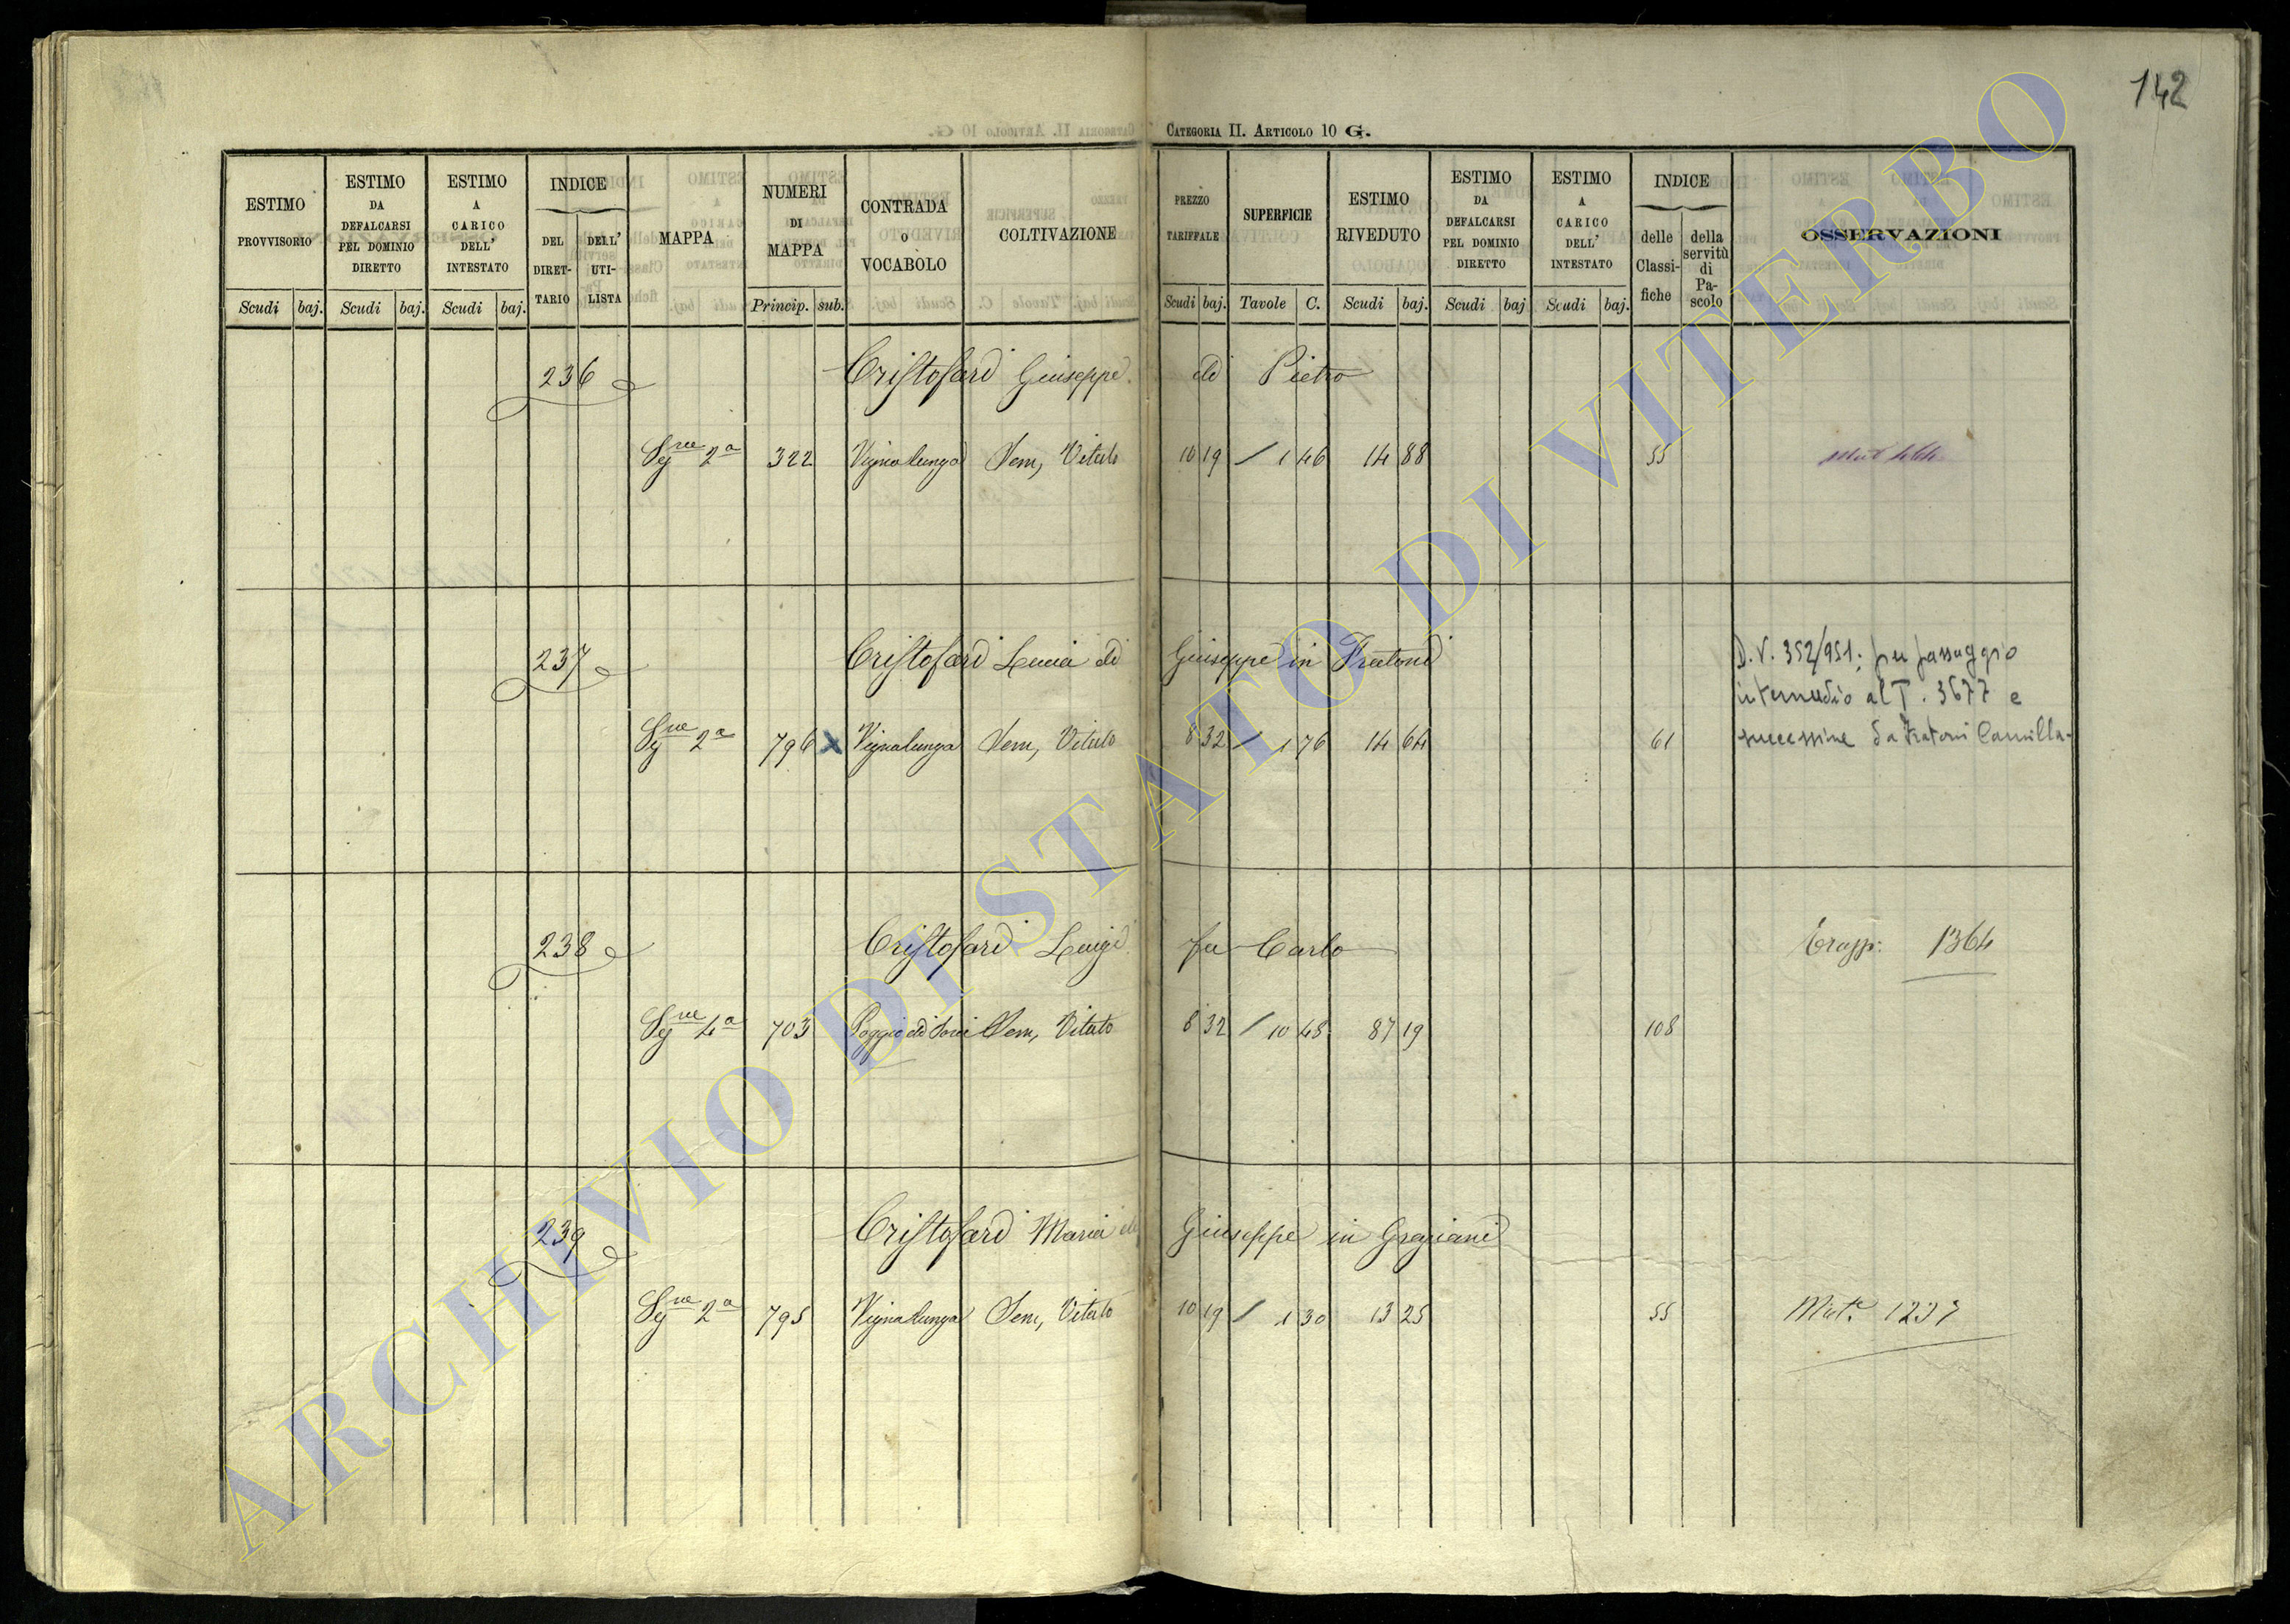 142
CATEGORIA II. ARTICOLO 10 G.
ESTIMO PROVVISORIO Scudi baj.
ESTIMO DA DEFALCARSI PEL DOMINIO DIRETTO Scudi baj.
ESTIMO A CARICO DELL' INTESTATO Scudi baj.
INDICE DEL DIRET-TARIO DELL' UTI-LISTA
MAPPA
NUMERI DI MAPPA Princip. sub.
CONTRADA O VOCABOLO
COLTIVAZIONE
PREZZO TARIFFALE Scudi baj.
SUPERFICIE Tavole C.
ESTIMO RIVEDUTO Scudi baj.
ESTIMO DA DEFALCARSI PEL DOMINIO DIRETTO Scudi baj
ESTIMO A CARICO DELL' INTESTATO Scudi baj.
INDICE delle Classi-fiche della servitù di Pa-scolo
OSSERVAZIONI
236 Cristofari Giuseppe di Pietro
Sgne 2a 322 Vignalunga Sem, Vitato 10 19 / 1 46 14 88 55
237 Cristofari Lucia di Giuseppe in Fratoni
D.V. 352/951; per passaggio
intermedio al T. 3677 e
successine da Fratoni Camilla-
Sgne 2a 796 x Vignalunga Sem, Vitato 8 32 / 1 76 14 64 61
238 Cristofari Luigi fu Carlo 1364
Sgne 4a 703 Poggio di Sorci Sem, Vitato 8 32 / 10 48 87 19 108
239 Cristofari Maria di Giuseppe in Graziani
Sgne 2a 795 Vignalunga Sem, Vitato 10 19 / 1 30 13 25 55 Mut.e 1237
ARCHIVIO DI STATO DI VITERBO